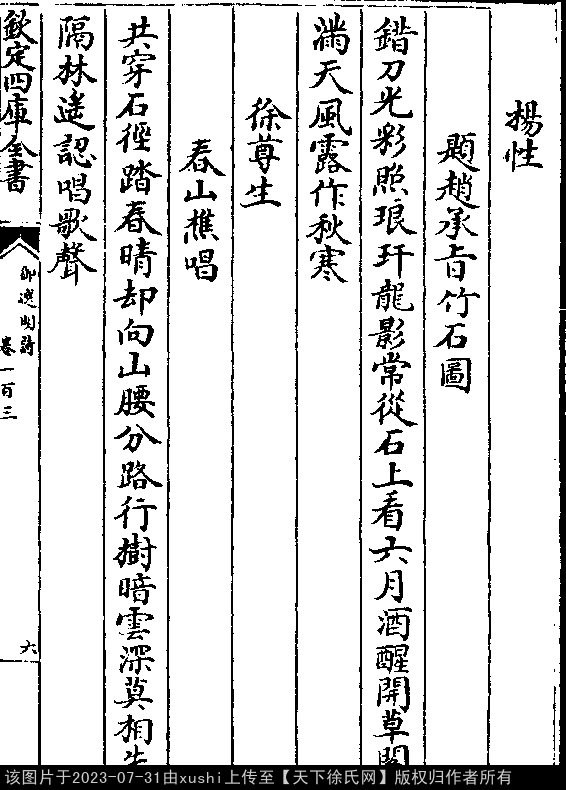 揚性
題趙承旨竹石圖
錯刀光彩照琅玕龍影常從石上看六月酒醒開草閣
滿天風露作秋寒
徐尊生
春山樵唱
共穿石徑踏春晴却向山腰分路行樹暗雲深莫相失
隔林遙認唱歌聲
欽定四庫全書
御選明詩
卷一百三
六
该图片于2023-07-31由xushi上传至【天下徐氏网】版权归作者所有